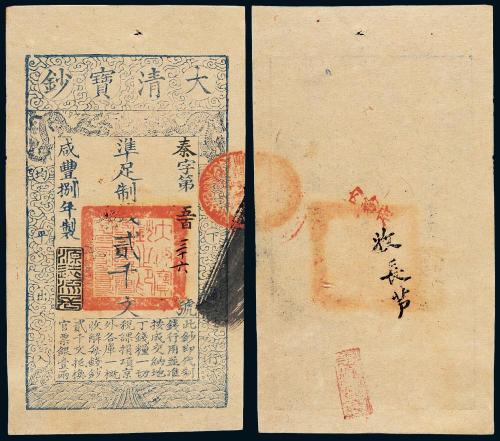 大清寶鈔
天下通行
秦字第
號
準足制錢貳千文
咸豐捌年製
均平出入
此鈔即代制
錢行用並准
按成交納地
丁錢糧一切
稅課捐項京
外各庫一概
收解每錢鈔
貳千文抵換
官票銀壹兩
收長芦